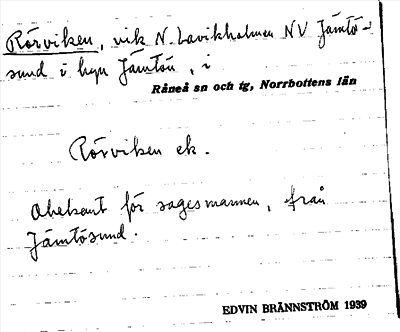 Rörviken, vik N. Lavikholmen NV Jämtö-
sund i hyn Jämtön, i
Råneå sn och tg, Norrbottens län
Rörviken ek.
Obekant för sagesmannen, från
Jämtösund.
EDVIN BRÄNNSTRÖM 1939